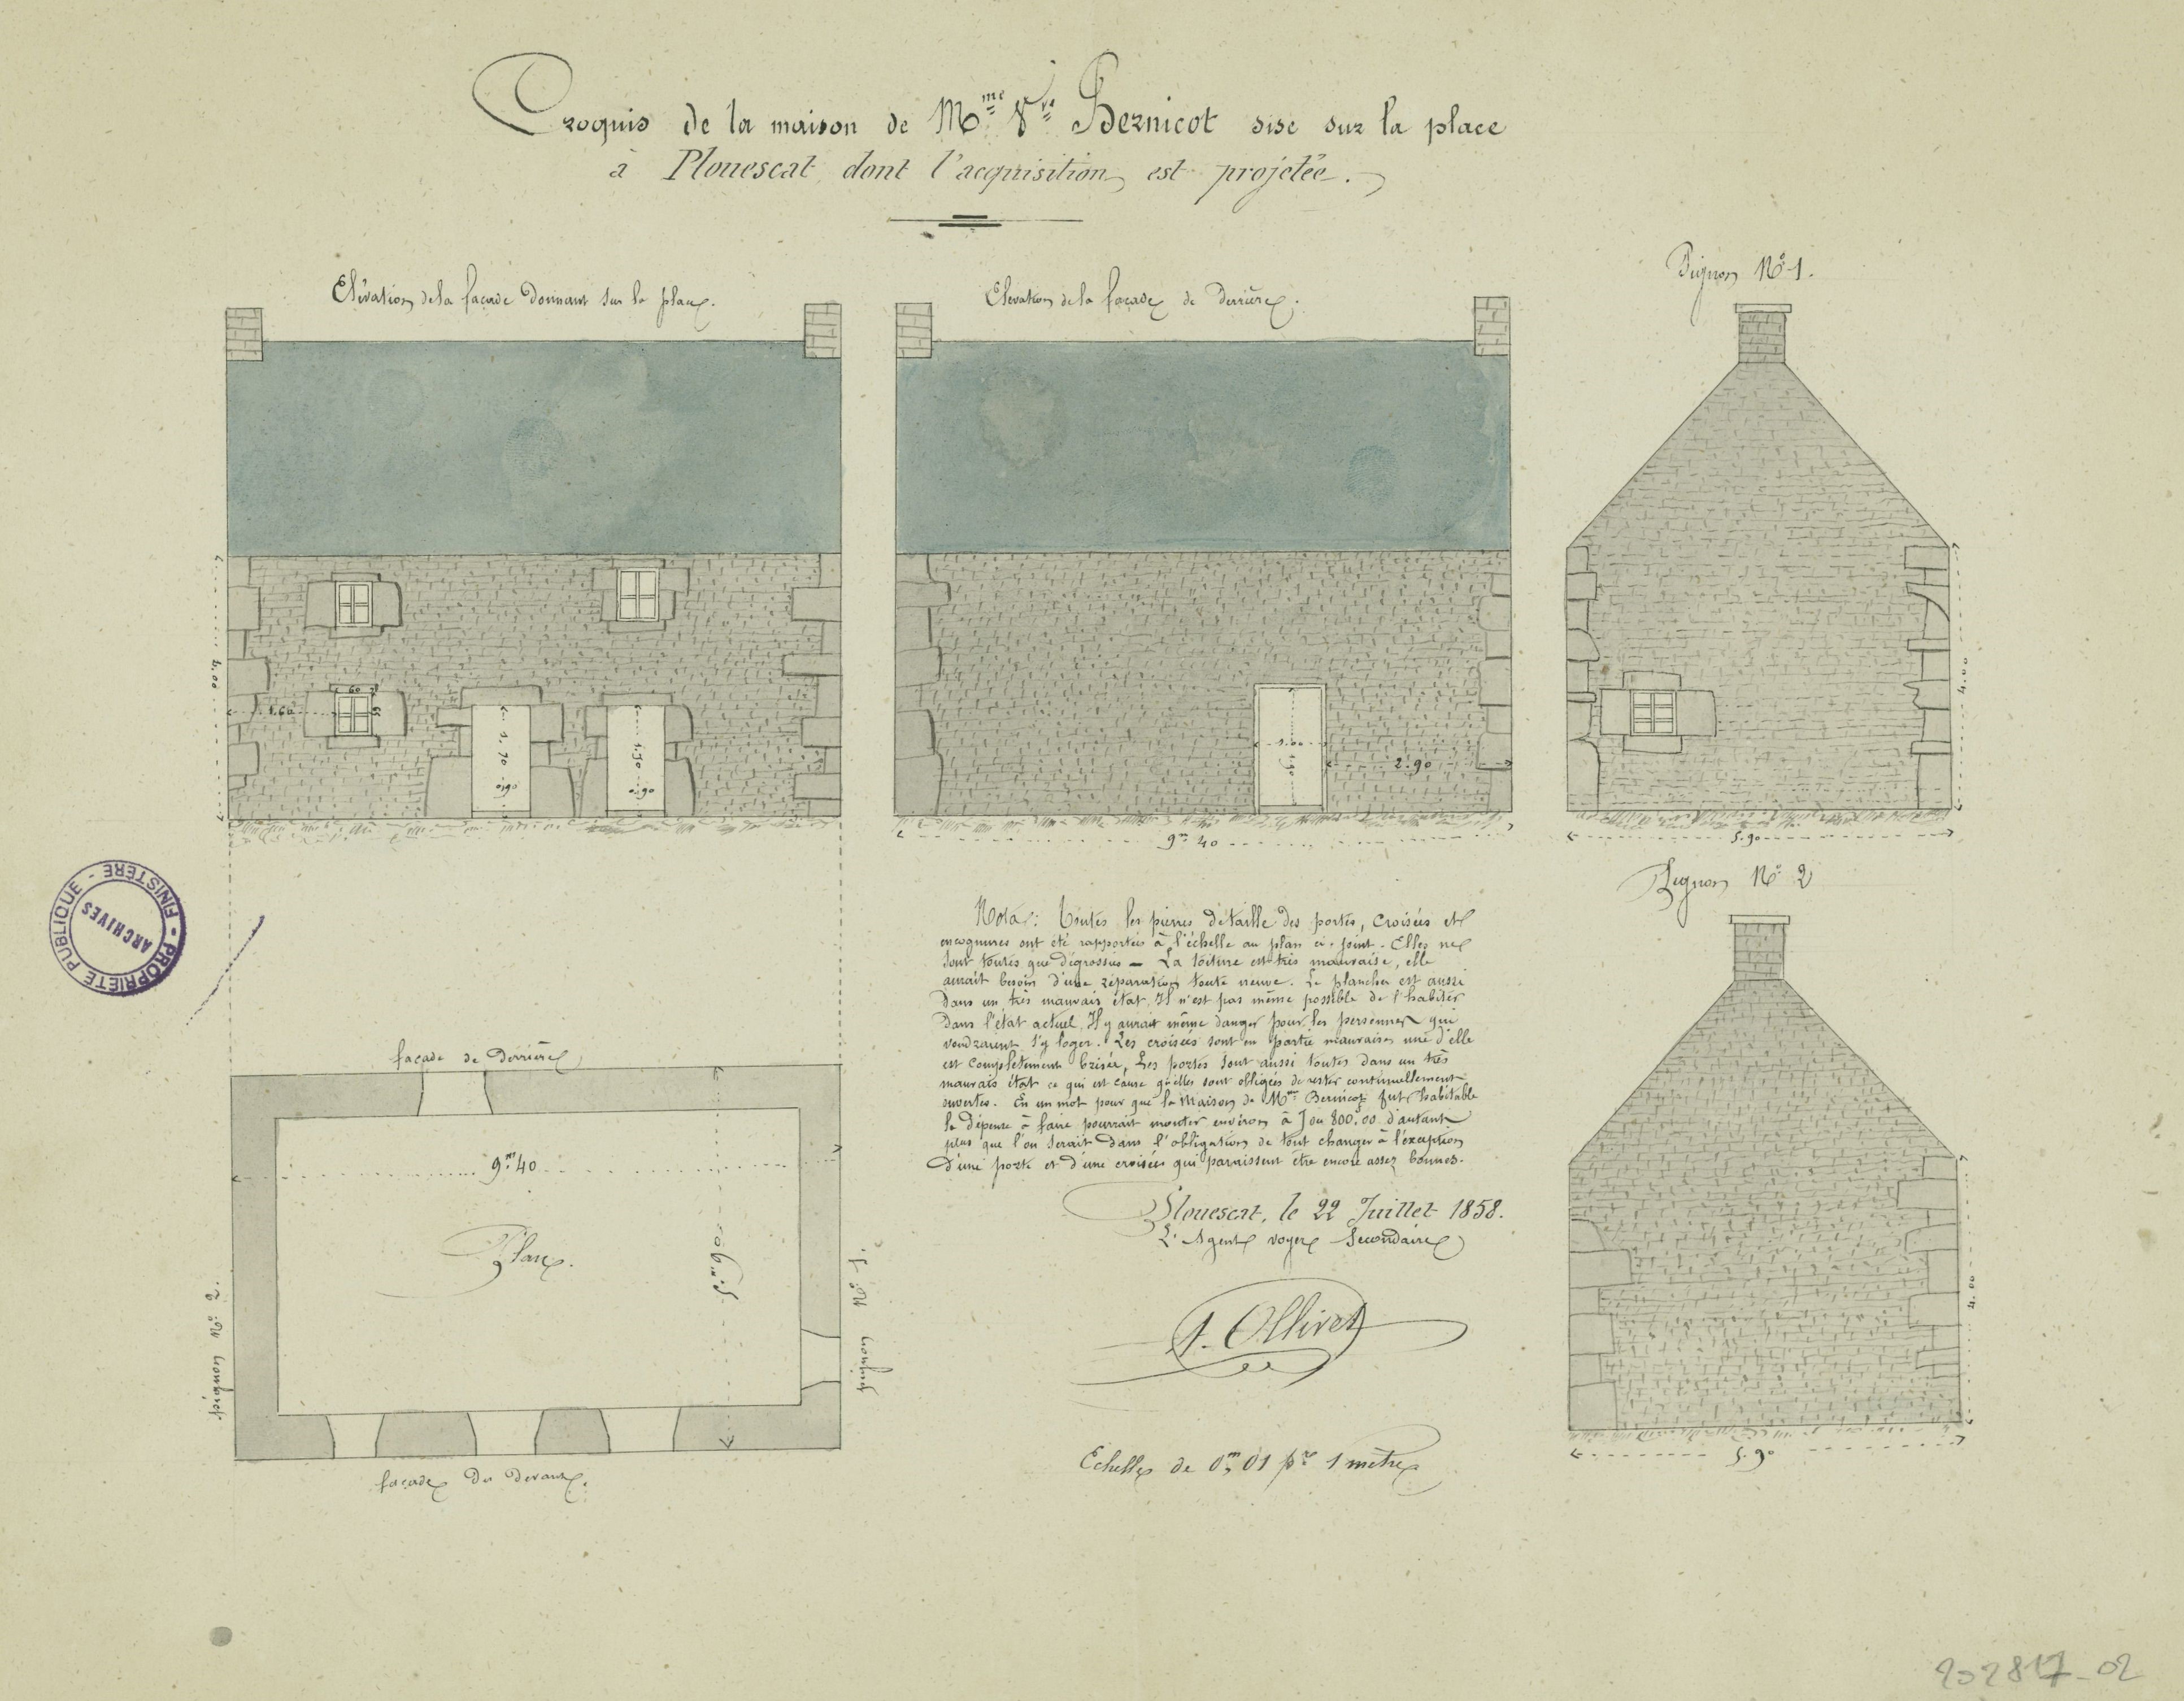 Croquis de la maison de Mme Vve Bernicot sise sur la place
à Plouescat dont l'acquisition est projetée.
Elévation de la façade Donnant sur la place.
Elevation de la façade de Derrière.
Pignon No 1.
4.00
1.60
60
1.70
0.90
1.70
0.90
1.00
2.90
9m 40
4.00
5.90
Pignon No 2
4.00
5.90
PROPRIÉTÉ PUBLIQUE - FINISTÈRE -
ARCHIVES
Nota: Toutes les pierres de taille des portes, croisées et
encognures ont été rapportées à l'échelle au plan ci-joint. Elles ne
sont toutes que dégrossies — La toiture est très mauvaise, elle
aurait besoin d'une réparation toute neuve. Le plancher est aussi
dans un très mauvais état, Il n'est pas même possible de l'habiter
dans l'état actuel, Il y aurait même danger pour les personnes qui
voudraient s'y loger. Les croisées sont en partie mauvaises une d'elle
est complètement brisée, Les portes sont aussi toutes dans un très
mauvais état ce qui est cause qu'elles sont obligées de rester continuellement
ouvertes. En un mot pour que la Maison de Mme Bernicot fut habitable
la dépense à faire pourrait monter environ à 800f.00 d'autant
plus que l'on serait dans l'obligation de tout changer à l'exception
d'une porte et d'une croisée qui paraissent être encore assez bonnes.
Plouescat, le 22 Juillet 1858.
L'Agent voyer Secondaire
Ollivet
Echelle de 0m,01 pr 1 mètre
façade de Derrière
9m40
Plan.
5m.90
pignon No 2.
pignon No 1.
façade du devant.
202817-02